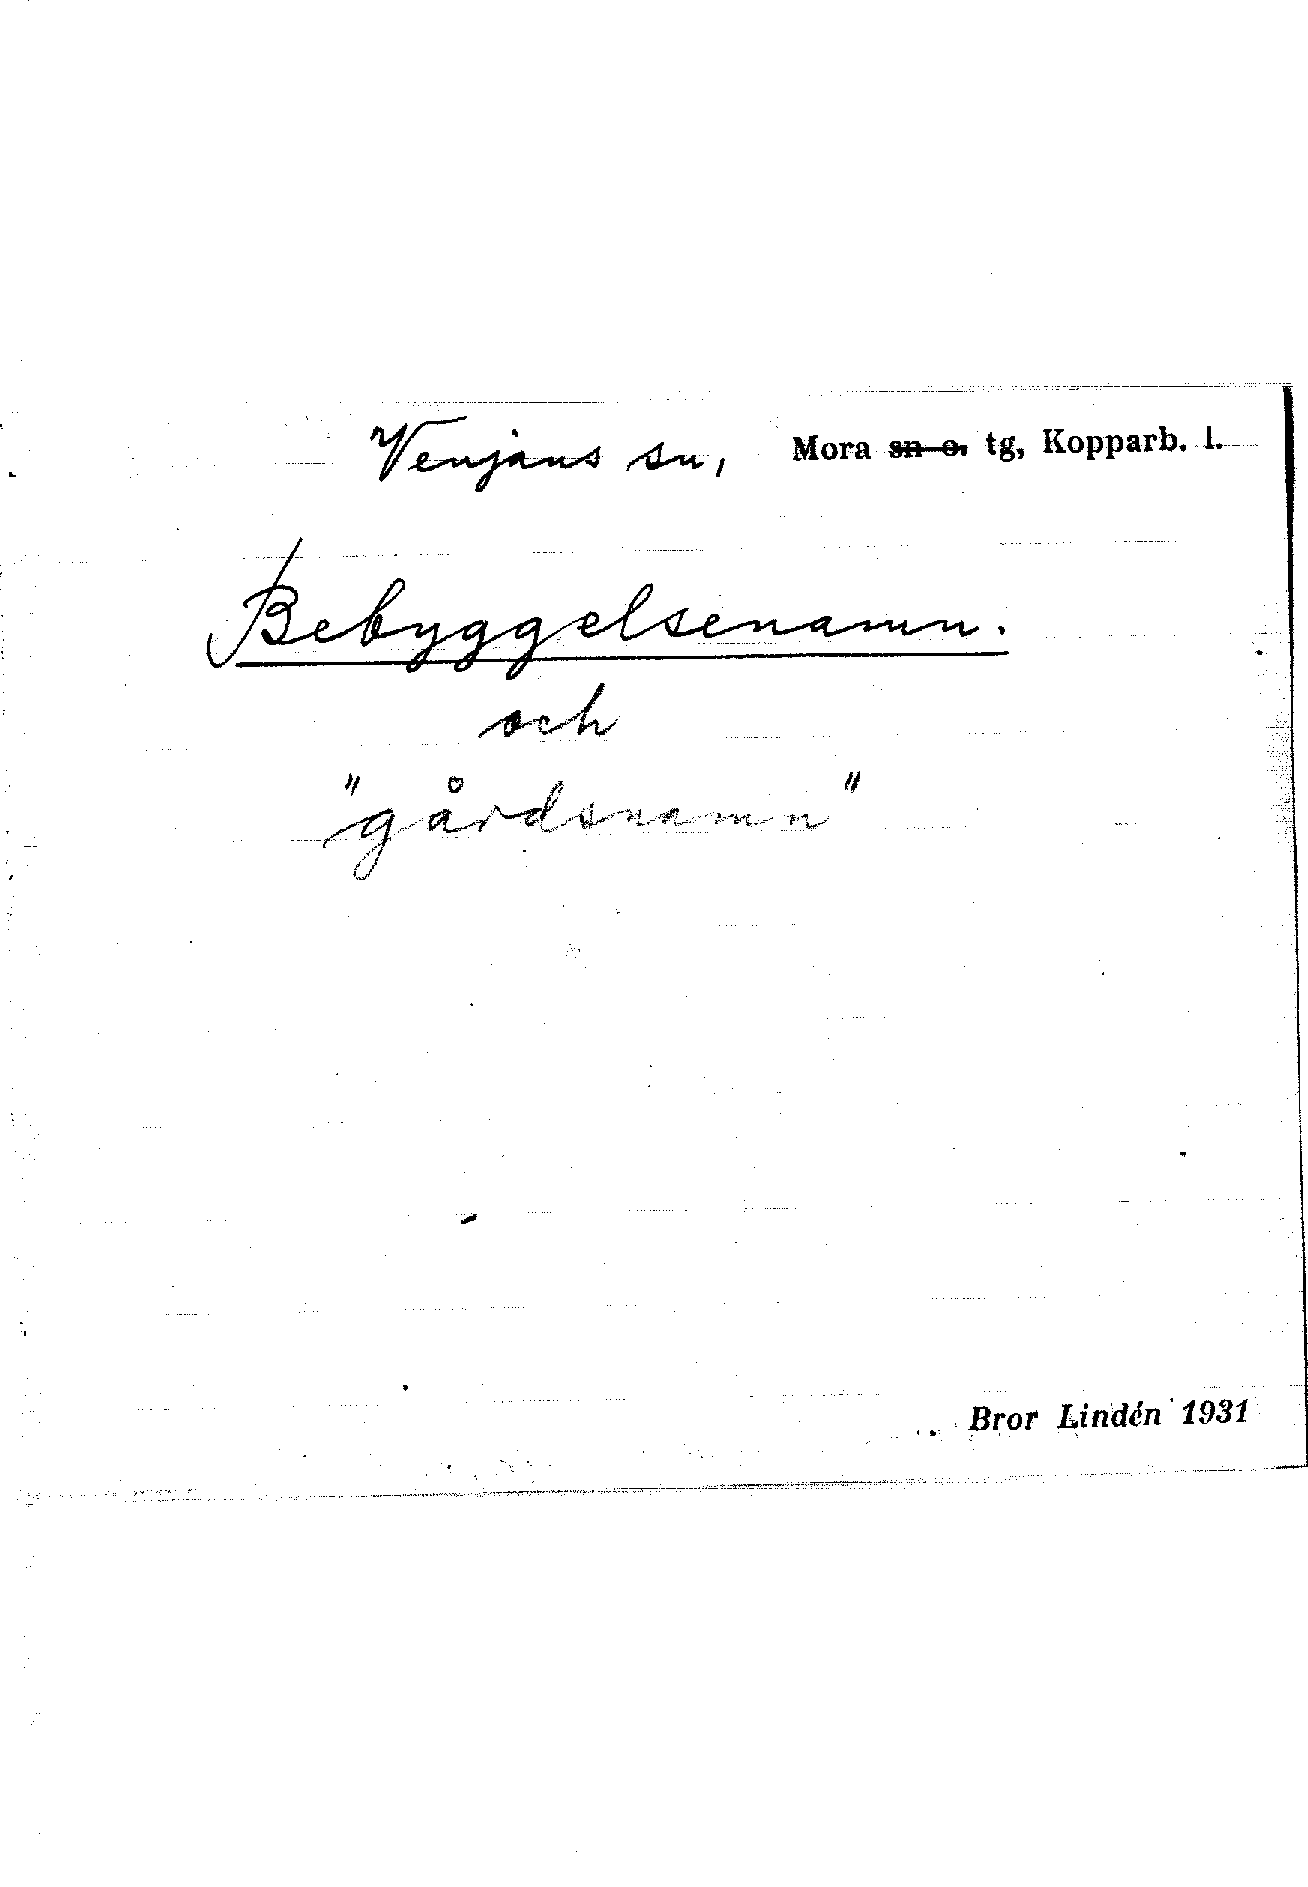 Venjans sn, Mora sn o. tg, Kopparb. l.
Bebyggelsenamn.
och
"gårdsnamn"
Bror Lindén 1931